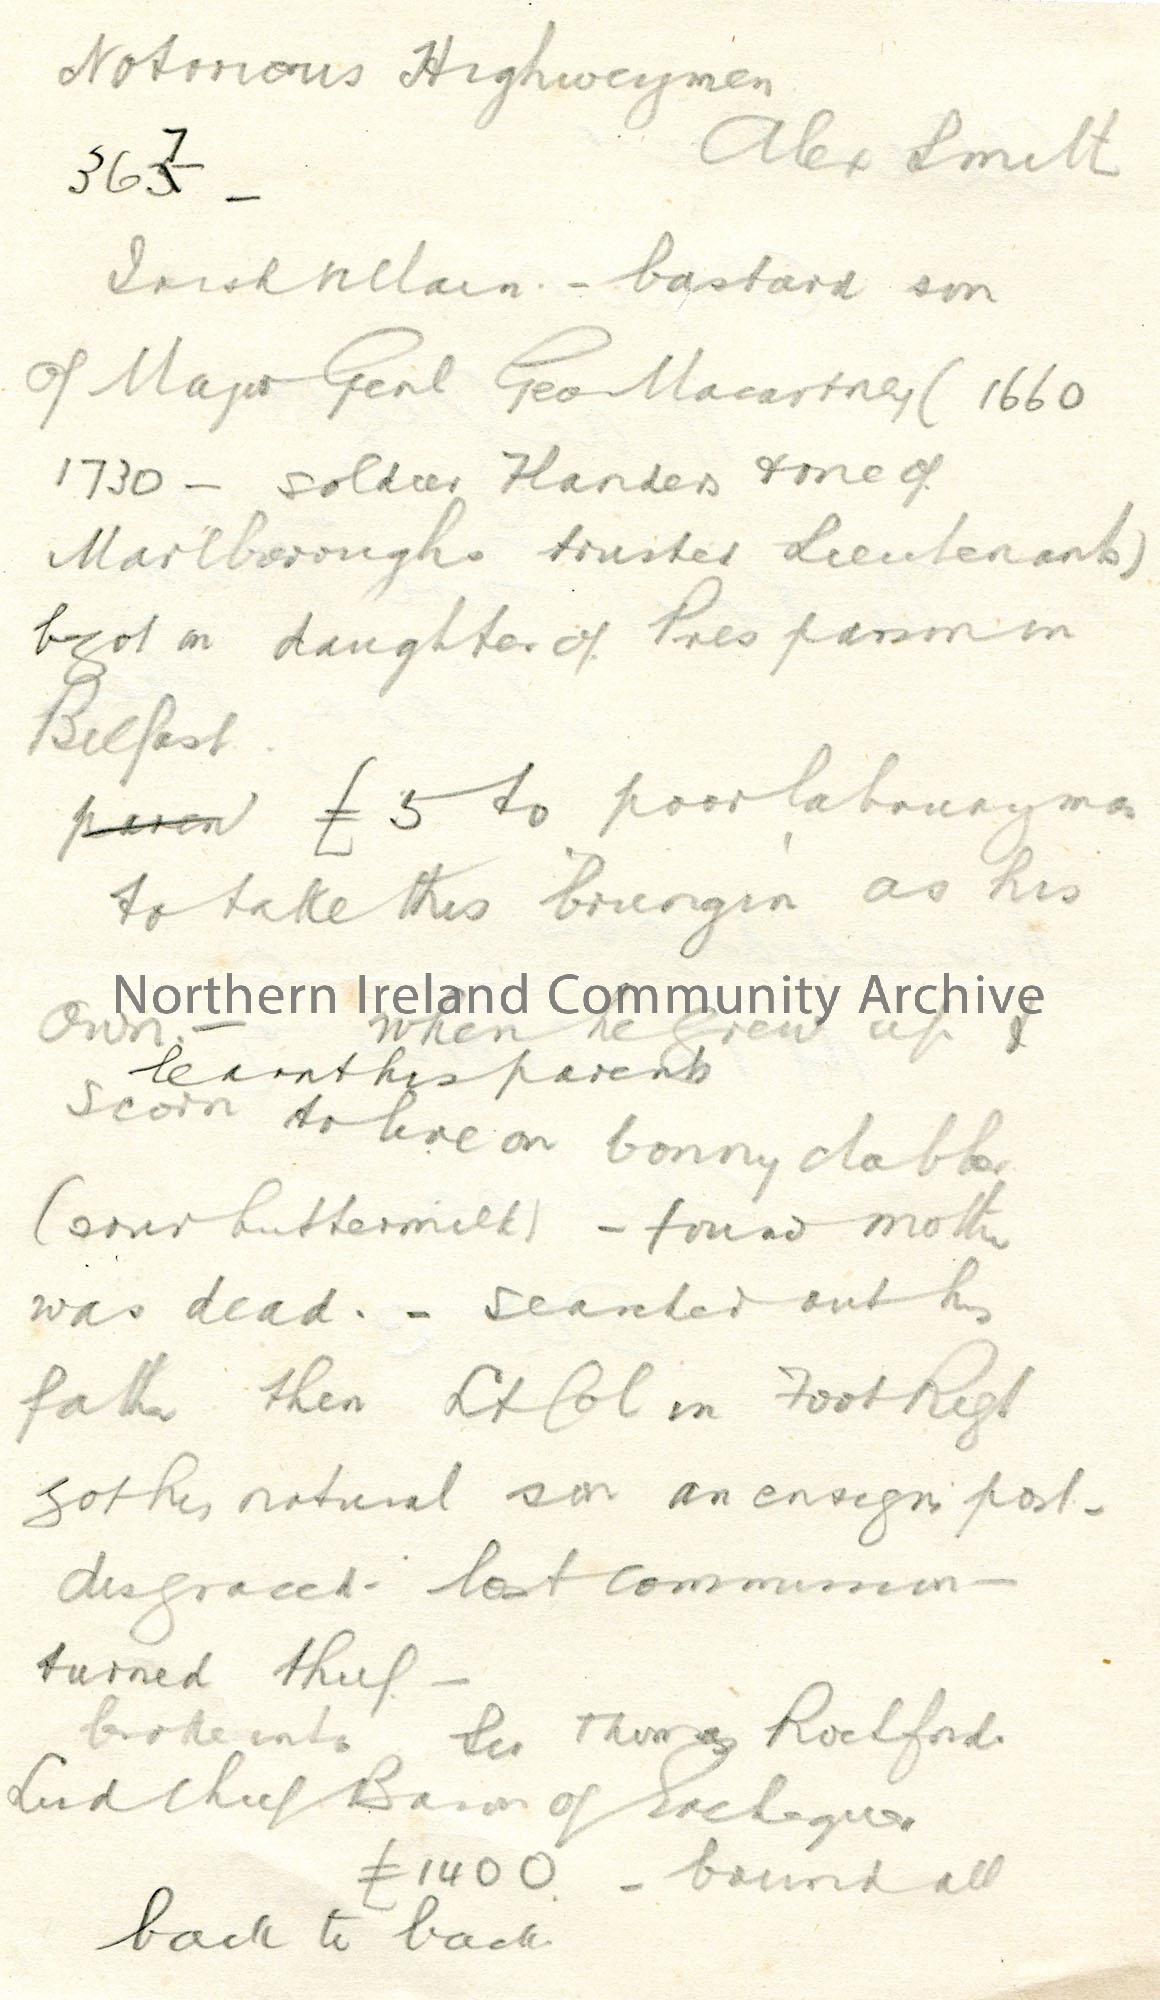 Notorious Highwaymen
Alex Smith
367 -
Irish villain. - bastard son
of Major Genl Geo Macartney (1660
1730 - soldier Flanders & one of
Marlboroughs trusted Lieutenants)
begot on daughter of Pres parson in
Belfast.
£5 to poor labouring man
to take this 'bringin' as his
Northern Ireland Community Archive
own. - when he grew up &
learnt his parents
scorn to live on bonny clabber
(sour buttermilk) - found mother
was dead. - searched out his
father then Lt Col in Foot Regt
got his natural son an ensign post -
disgraced - lost commission -
turned thief -
broke into Sir Thomas Rochfords
Lord Chief Baron of Exchequer
£1400 - bound all
back to back